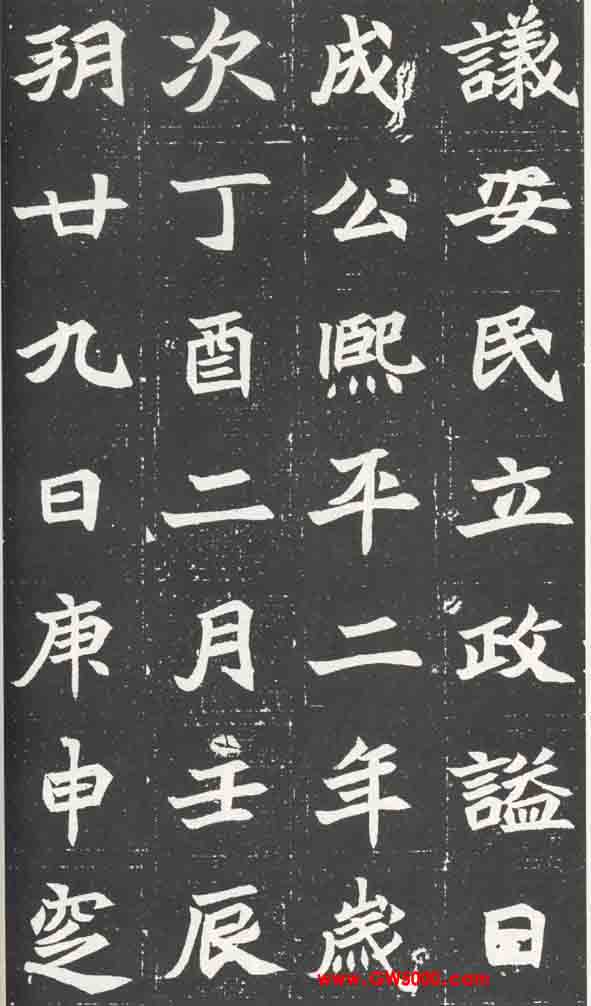 議安民立政謚曰
成公熙平二年歲
次丁酉二月壬辰
朔廿九日庚申窆
www.GW9000.com